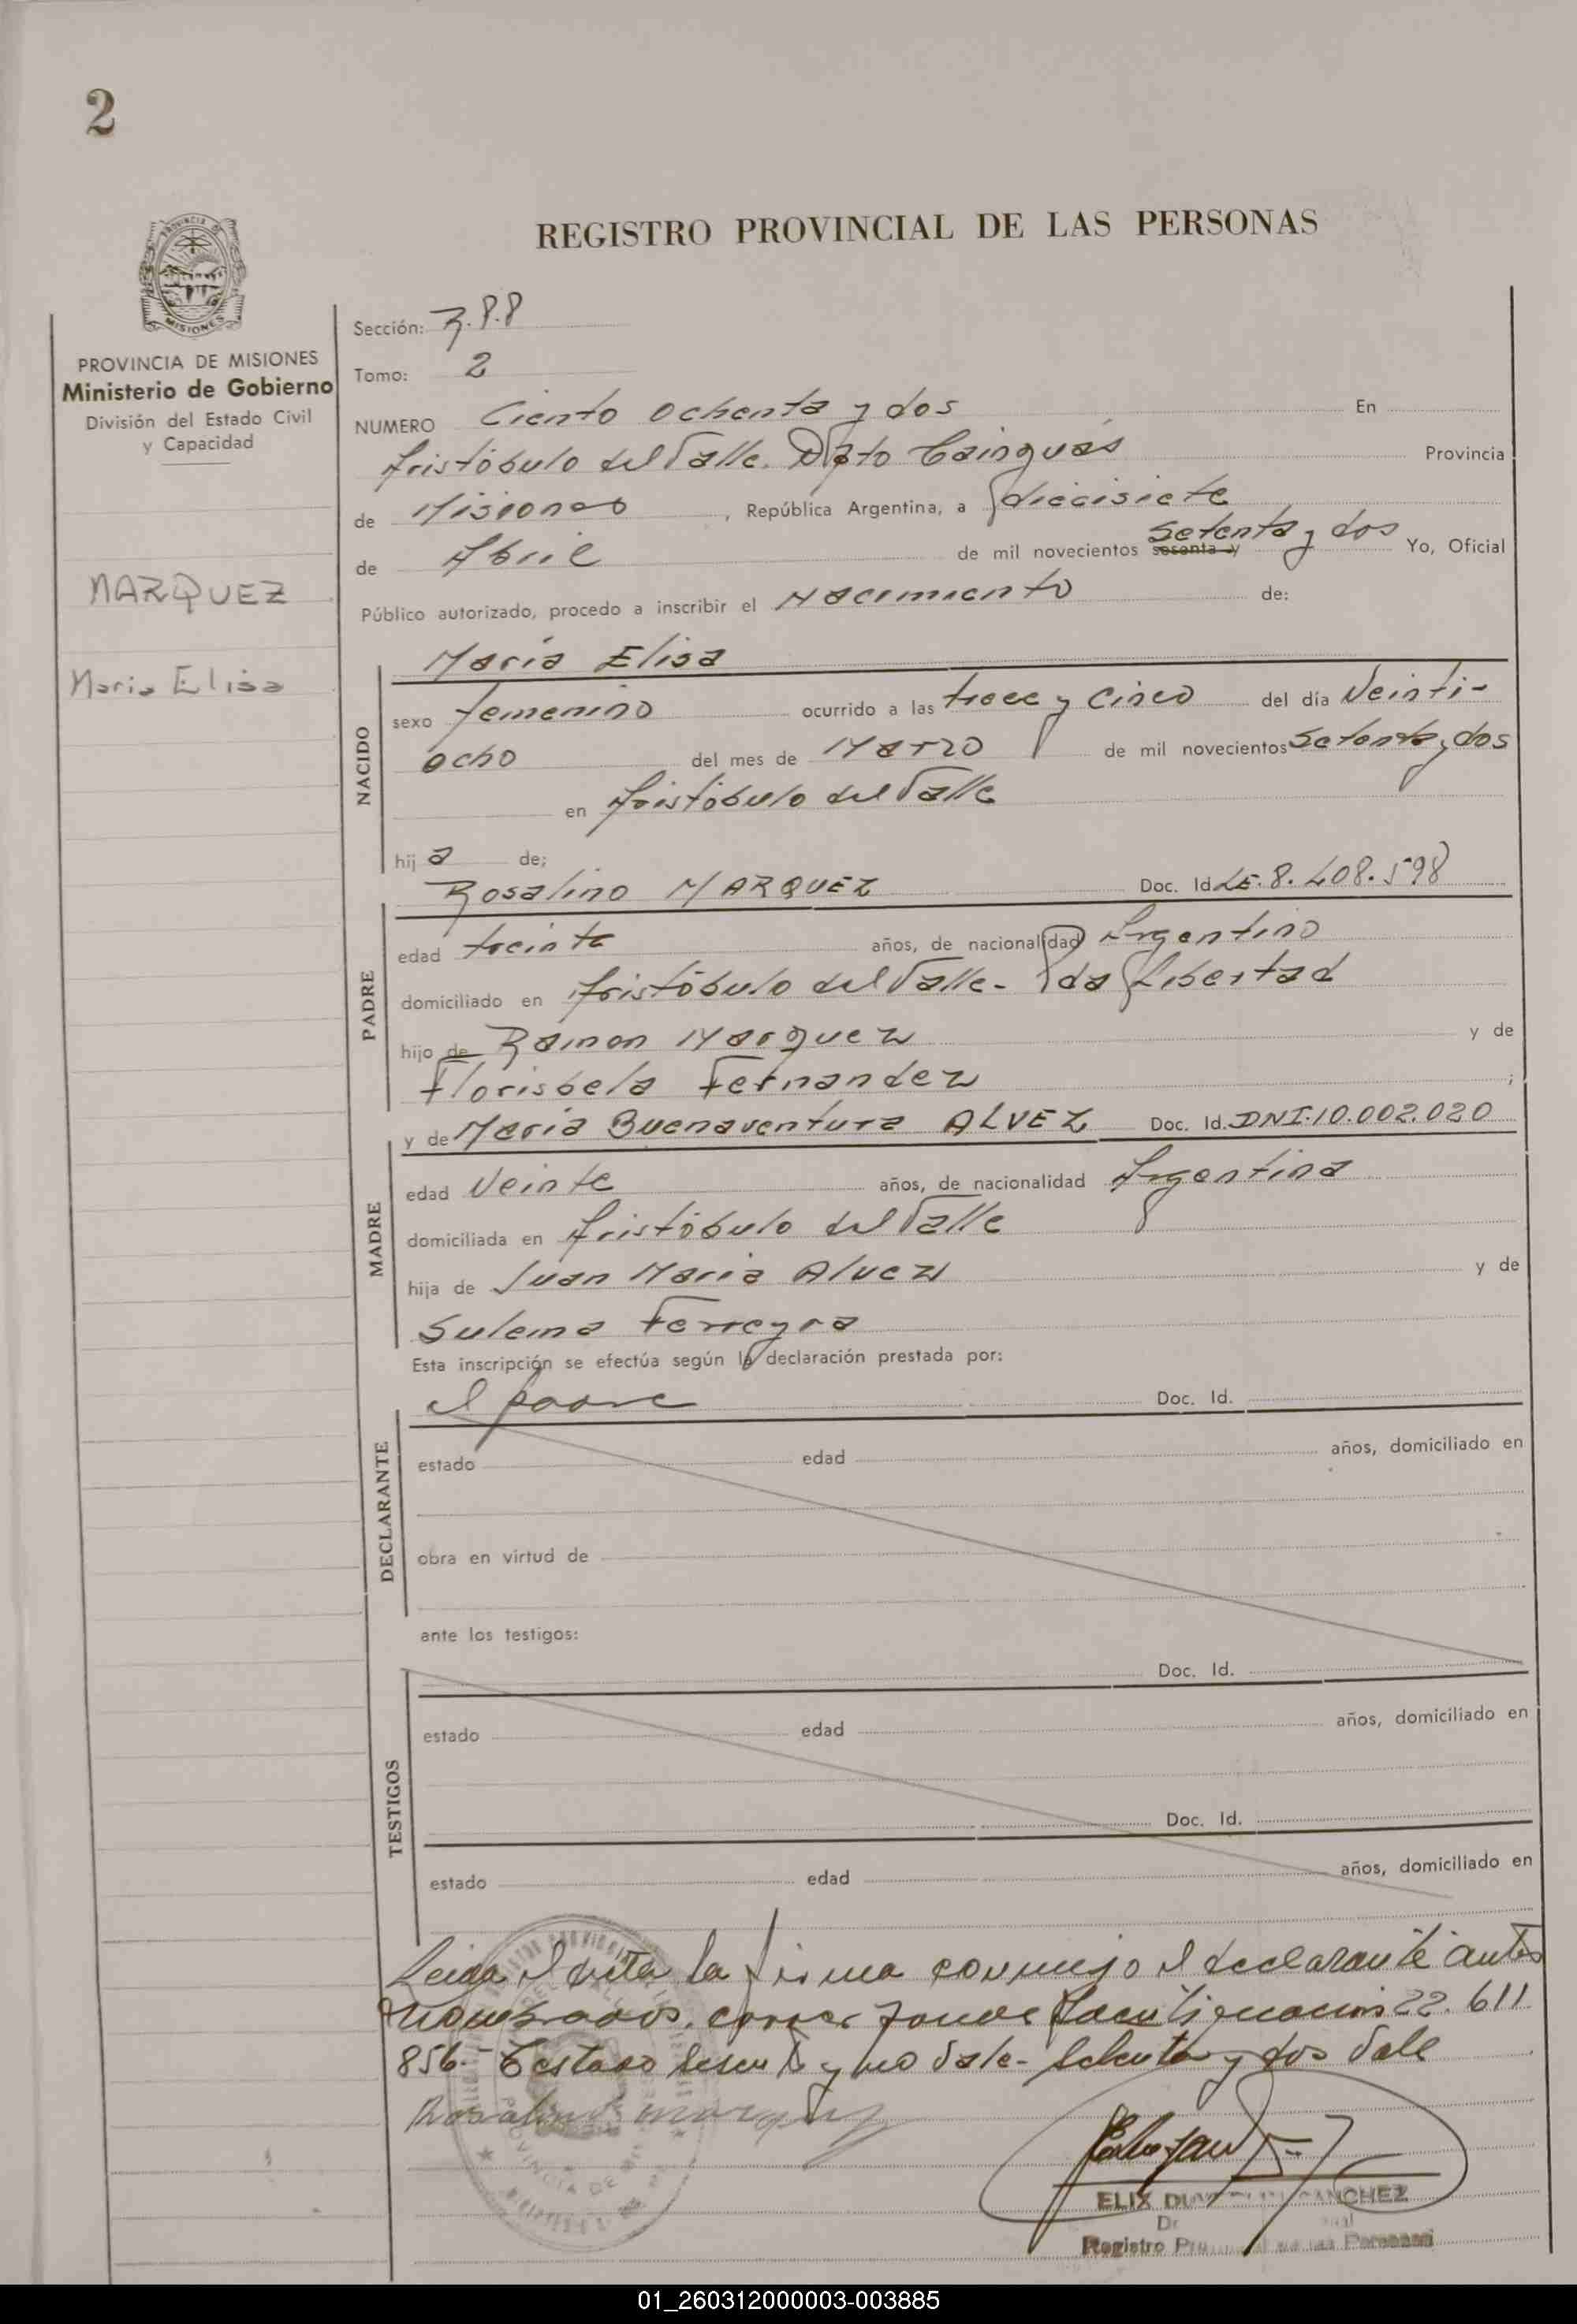 2
REGISTRO PROVINCIAL DE LAS PERSONAS
MISIONES
PROVINCIA DE MISIONES
Ministerio de Gobierno
División del Estado Civil
y Capacidad
MARQUEZ
Maria Elisa
Sección:
Tomo: 2
NUMERO Ciento ochenta y dos En
Aristóbulo del Valle. Dpto Cainguás Provincia
de Misiones, República Argentina, a diecisiete
de Abril de mil novecientos sesenta y setenta y dos Yo, Oficial
Público autorizado, procedo a inscribir el Nacimiento de:
María Elisa
NACIDO
sexo femenino ocurrido a las trece y cinco del día Veinti-
ocho del mes de Marzo de mil novecientos setenta y dos
en Aristóbulo del Valle
hija de;
Rosalino MARQUEZ Doc. Id. LE. 8.408.598
PADRE
edad treinta años, de nacionalidad Argentino
domiciliado en Aristóbulo del Valle- Pda Libertad
hijo de Ramon Marquez y de
Florisbela Fernandez ;
y de María Buenaventura ALVEZ Doc. Id. DNI.10.002.020
MADRE
edad Veinte años, de nacionalidad Argentina
domiciliada en Aristóbulo del Valle
hija de Juan Maria Alvez y de
Sulema Ferreyra
Esta inscripción se efectúa según la declaración prestada por:
el padre Doc. Id.
DECLARANTE
estado edad años, domiciliado en
obra en virtud de
ante los testigos:
Doc. Id.
TESTIGOS
estado edad años, domiciliado en
Doc. Id.
estado edad años, domiciliado en
Leida el acta la firma conmigo el declarante antes
nombrados. 22.611
856.- Testado sesenta y no vale- setenta y dos vale
Rosalino marquez
ELIX SANCHEZ
Registro Personas
01_260312000003-003885